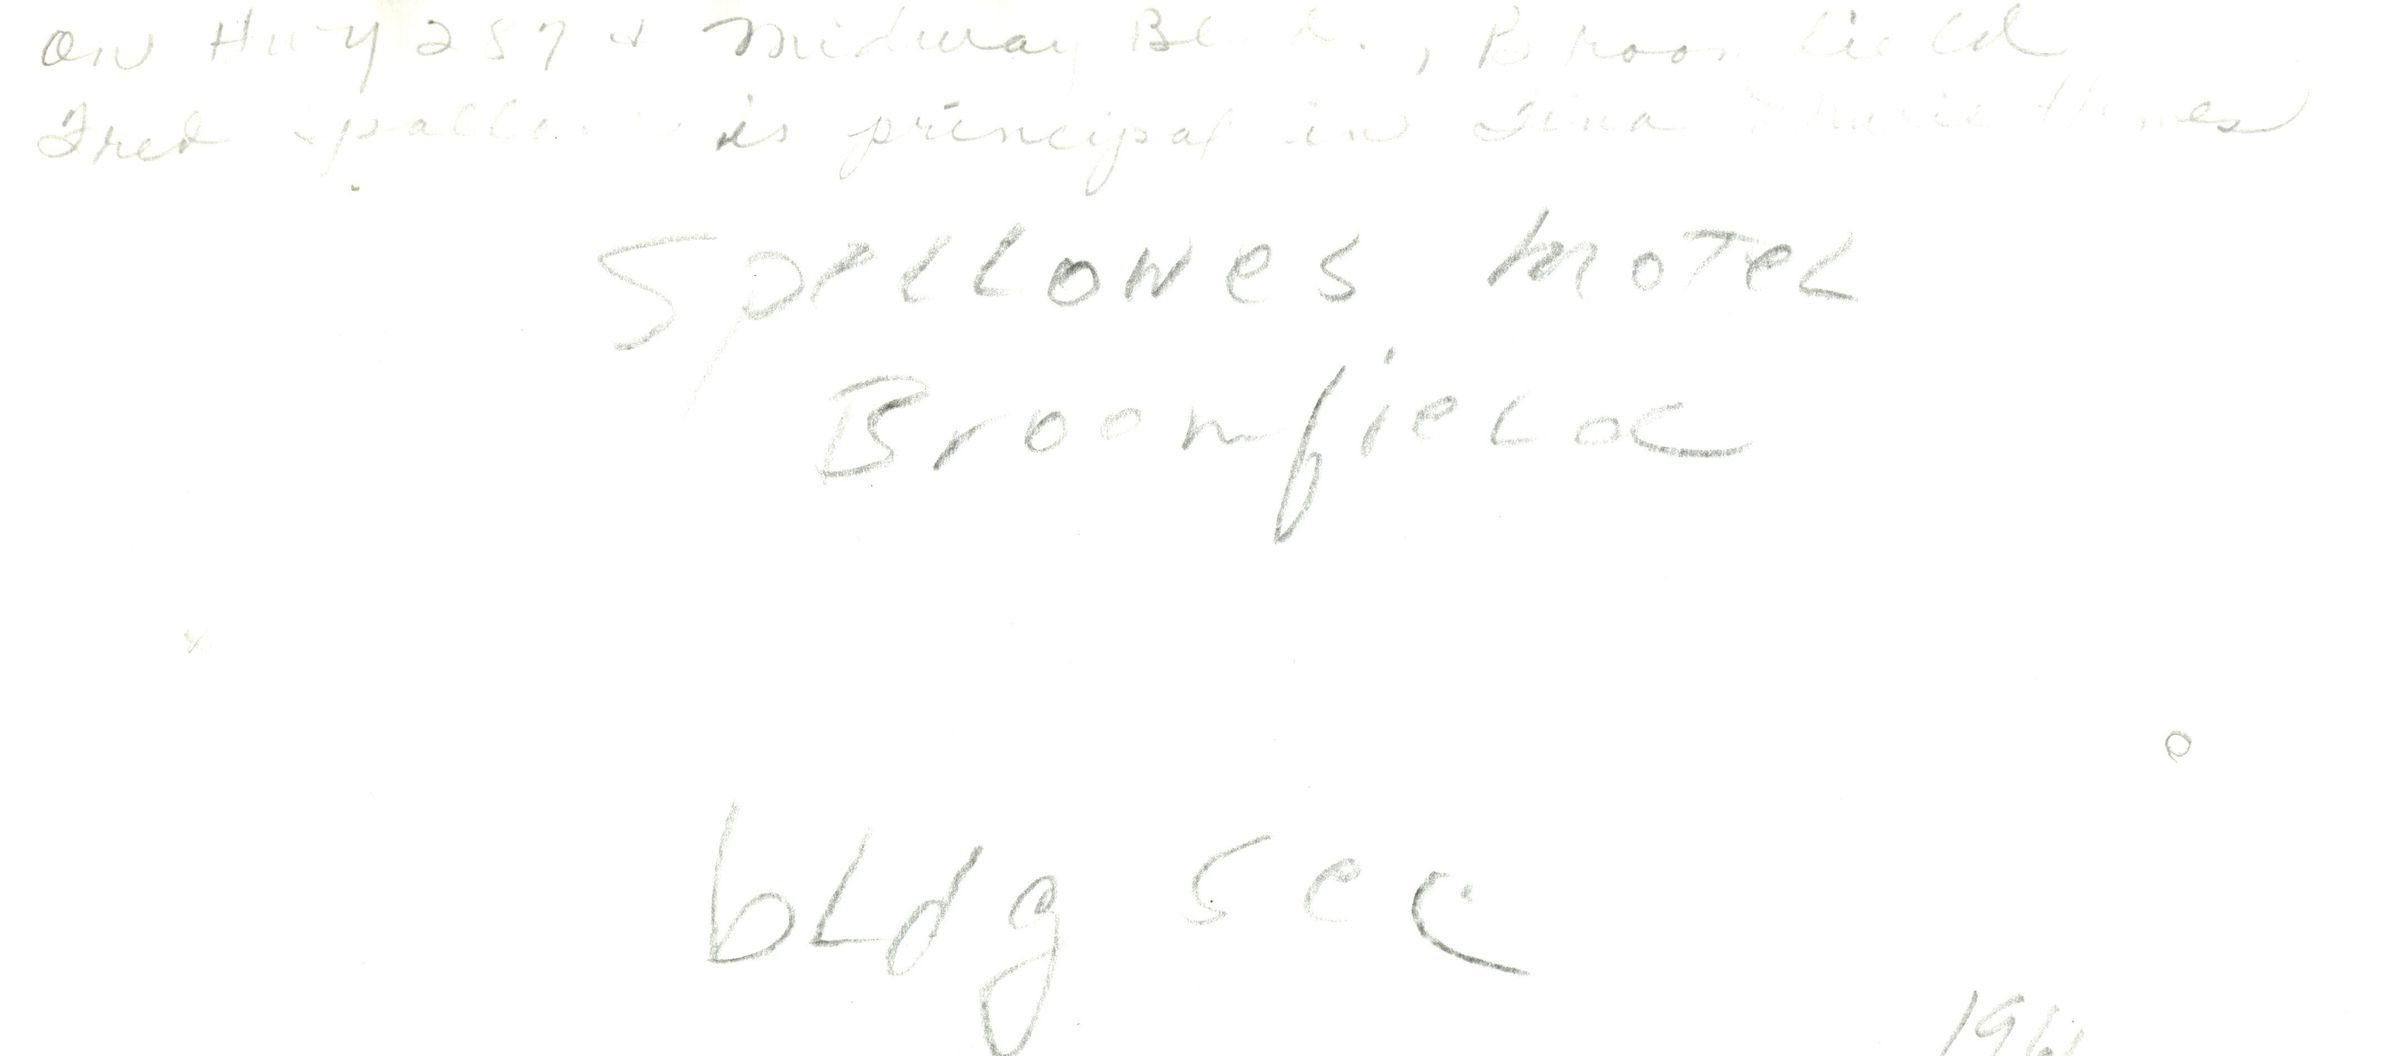 on Hwy 287 & Midway Blvd., Broomfield
Fred is principal in Tina Marie Homes
Spellones Motel
Broomfield
bldg sec